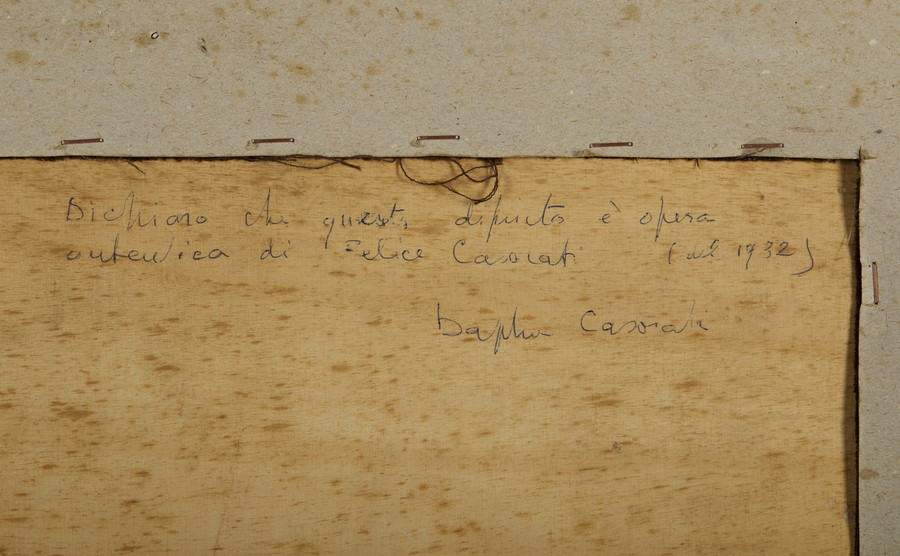 Dichiaro che questo dipinto è opera
autentica di Felice Casorati (del 1932)
Daphne Casorati